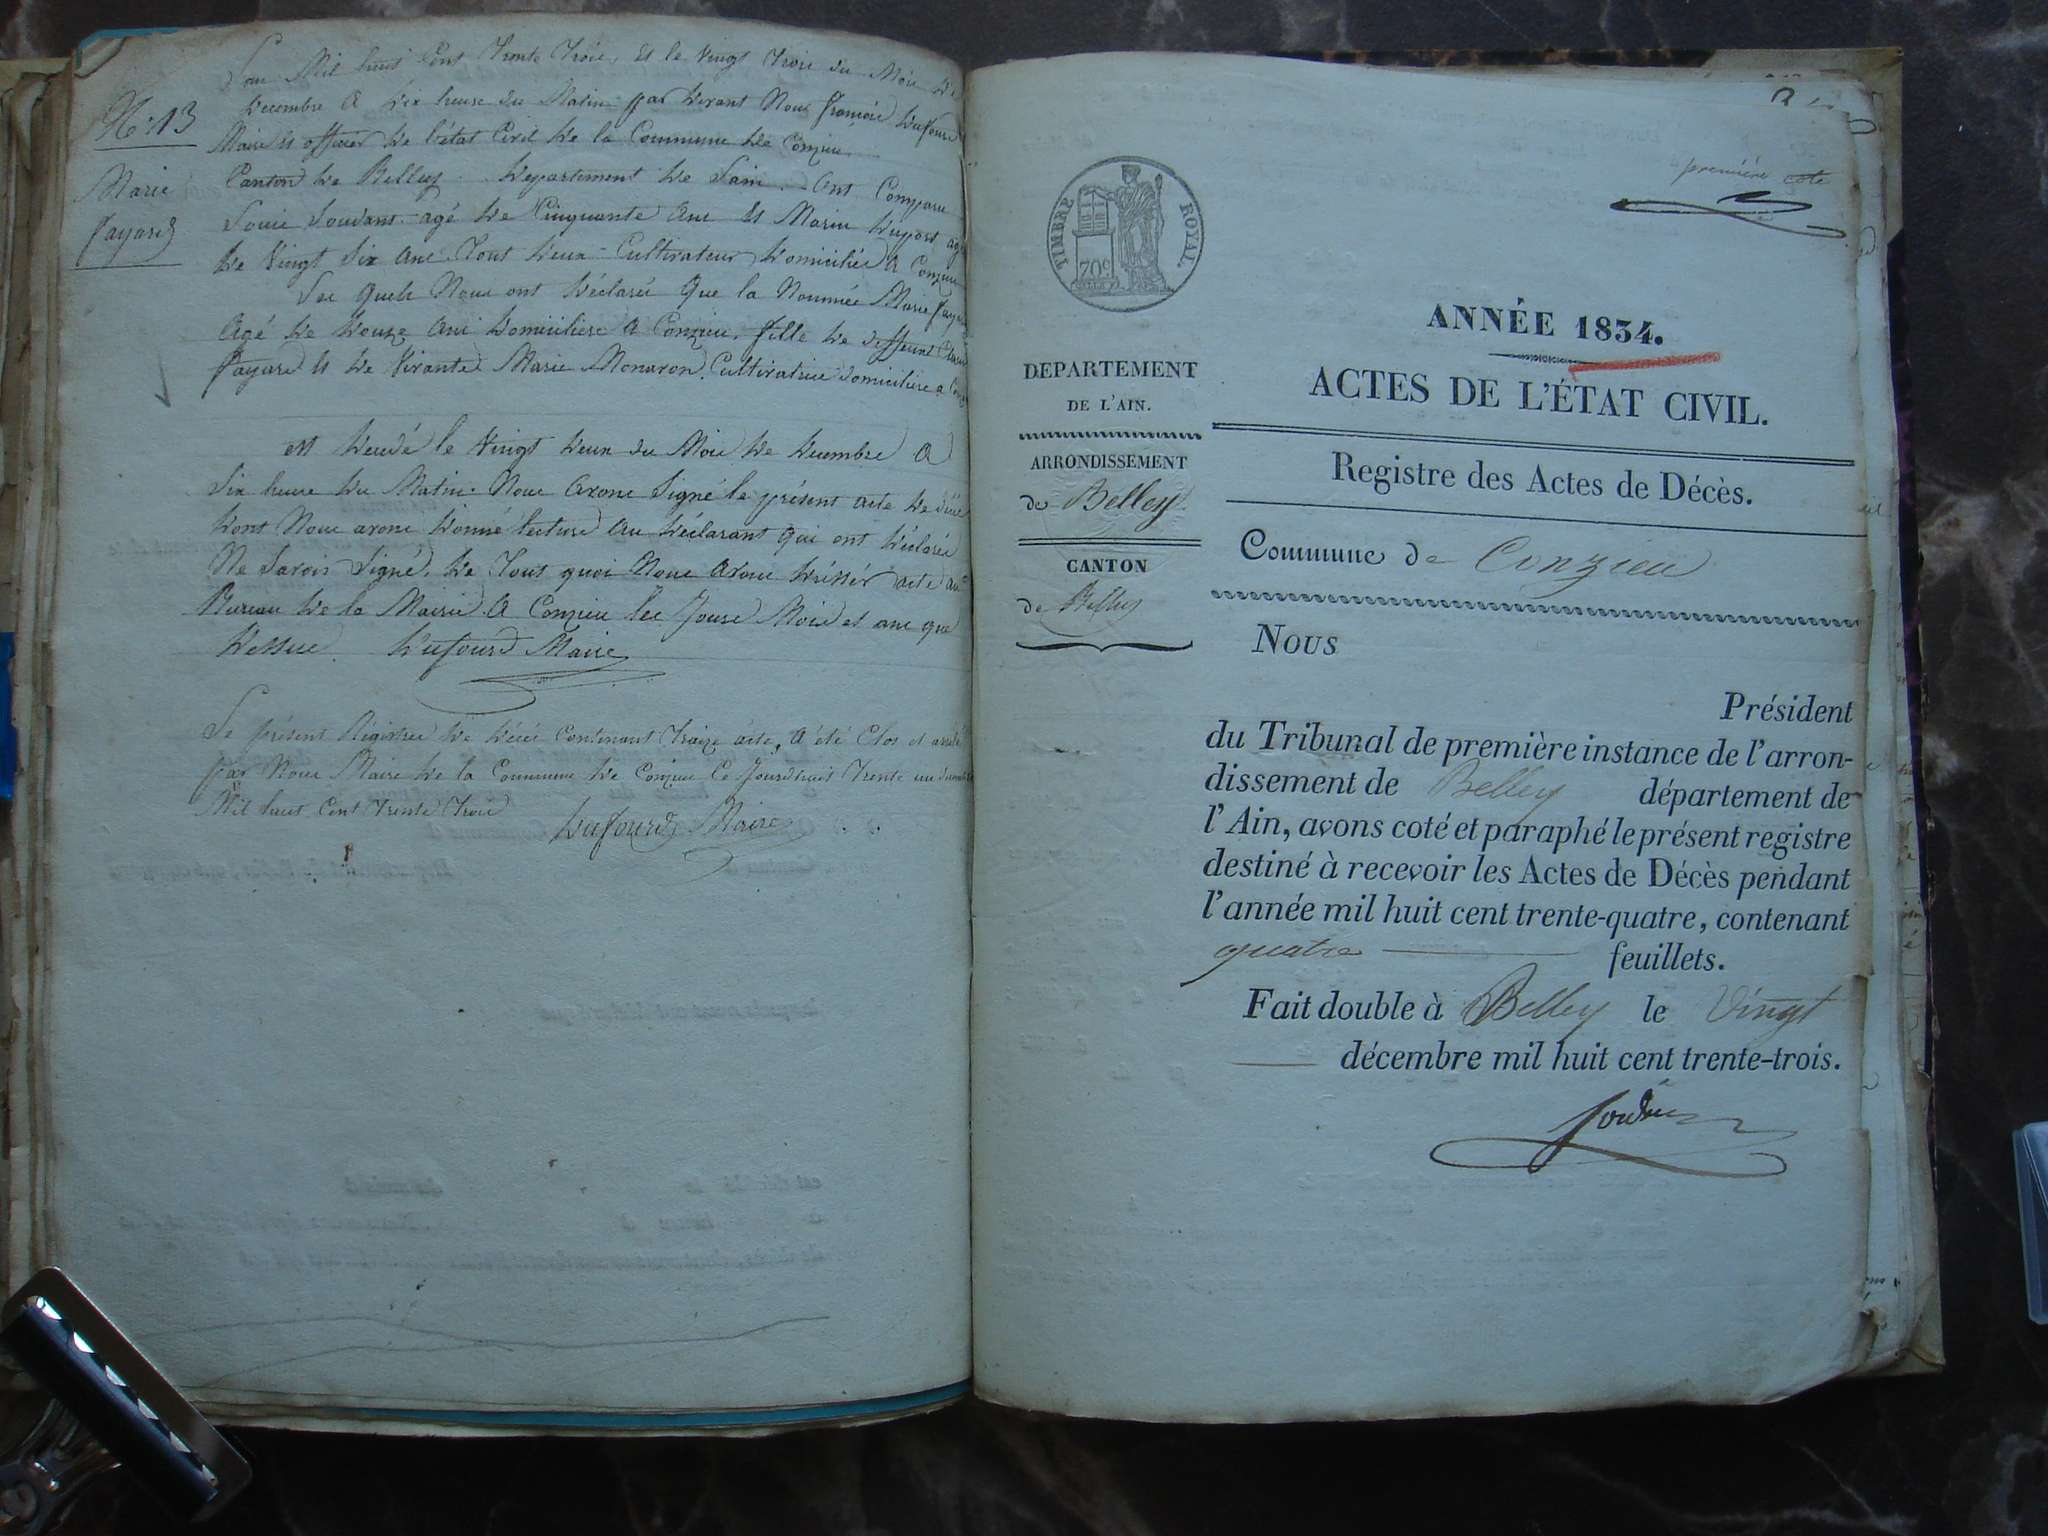 N.° 13
Marie
fayard
Lan Mil huit Cent Trente Trois, Et le vingt Trois du Mois De
Decembre A Dix heure du Matin par Devant Nous françois Dufourd
Maire Et officier De l'état Civil De la Commune De Conzieu
Canton De Belley Departement De Lain. Ont Comparu
Louis agé De Cinquante Ans Et Marin Dupont agé
De Vingt Six Ans Tous Deux Cultivateur Domicilié A Conzieu
Les quels Nous ont Déclaré Que la Nommée Marie fayard
Agé De Douze Ans Domiciliée A Conzieu. fille De Deffunt
fayard Et De Vivante Marie Monavon Cultivatrice domiciliée a
est Décédé le Vingt Deux du Mois De Decembre A
Six heure Du Matin. Nous Avons Signé le présent acte De
Dont Nous avons Donné lecture Au Déclarant Qui ont Déclaré
Ne Savoir Signé. De Tous quoi Nous Avons Dréssér acte au
Bureau De la Mairie A Conzieu les Jours Mois et ans que
Dessus. Dufourd Maire
Le présent Régistre De Décé Contenant Traize acte, A été Clos et arrêté
par Nous Maire De la Commune De Conzieu Ce Jourdhuit Trente un
Mil huit Cent Trente Trois
Dufourd Maire
première cote
TIMBRE ROYAL.
70c
ANNÉE 1834.
DEPARTEMENT
DE L'AIN.
ACTES DE L'ÉTAT CIVIL.
ARRONDISSEMENT
de Belley
Registre des Actes de Décès.
CANTON
de Belley
Commune de Conzieu
Nous
Président
du Tribunal de première instance de l'arron-
dissement de Belley département de
l'Ain, avons coté et paraphé le présent registre
destiné à recevoir les Actes de Décès pendant
l'année mil huit cent trente-quatre, contenant
quatre feuillets.
Fait double à Belley le Vingt
décembre mil huit cent trente-trois.